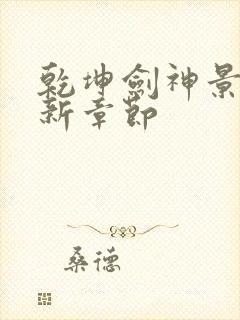 乾坤劍神景
新章節
桑德